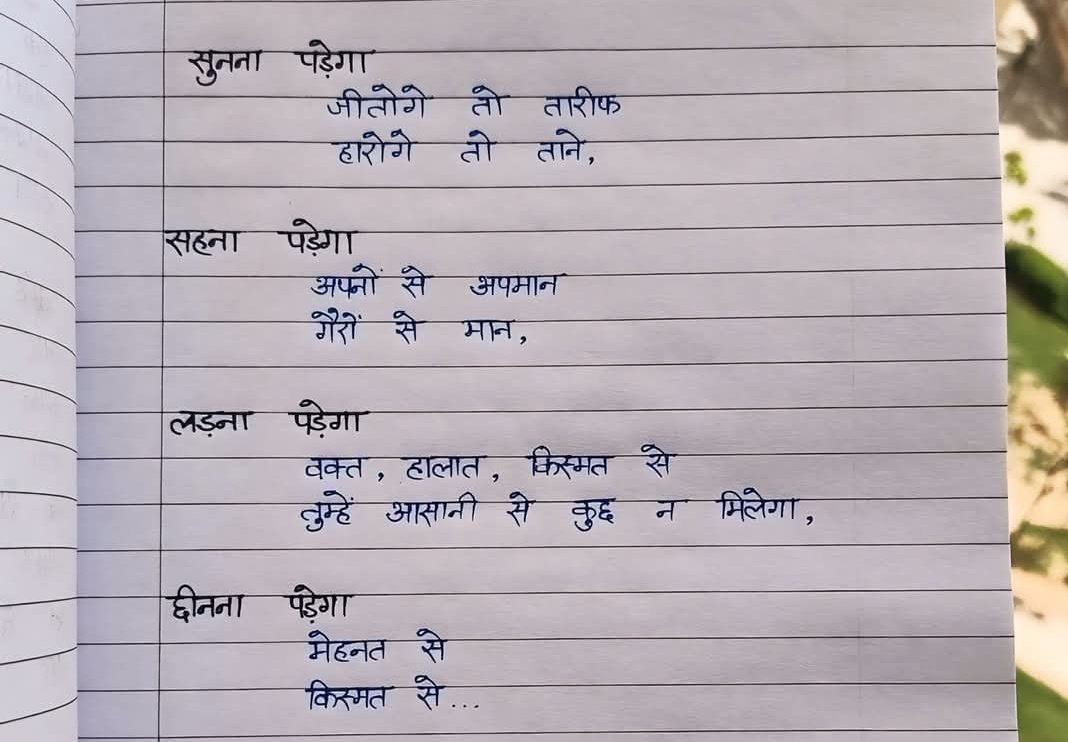 सुनना पड़ेगा
जीतोगे तो तारीफ
हारोगे तो ताने,
सहना पड़ेगा
अपनों से अपमान
गैरों से मान,
लड़ना पड़ेगा
वक्त, हालात, किस्मत से
तुम्हें आसानी से कुछ न मिलेगा,
छीनना पड़ेगा
मेहनत से
किस्मत से...